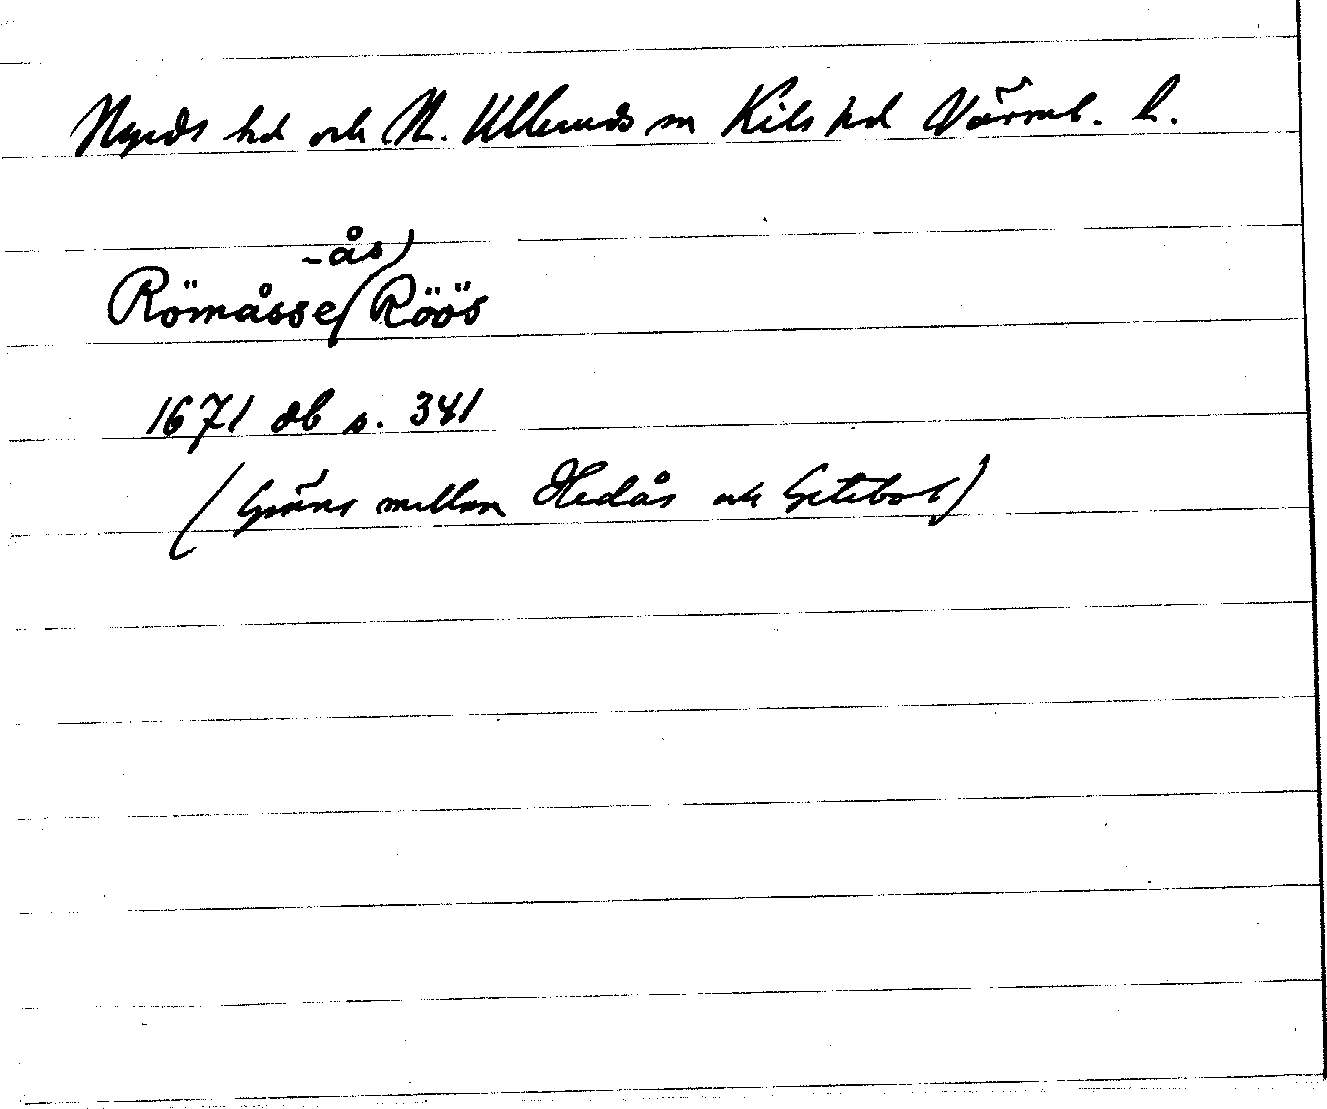 Nyeds hd och N. Ulleruds sn Kils hd Värml. l.
-ås)
Römåsse/Röös
1671 db s. 341
(Gräns mellan Hedås och Getebol)